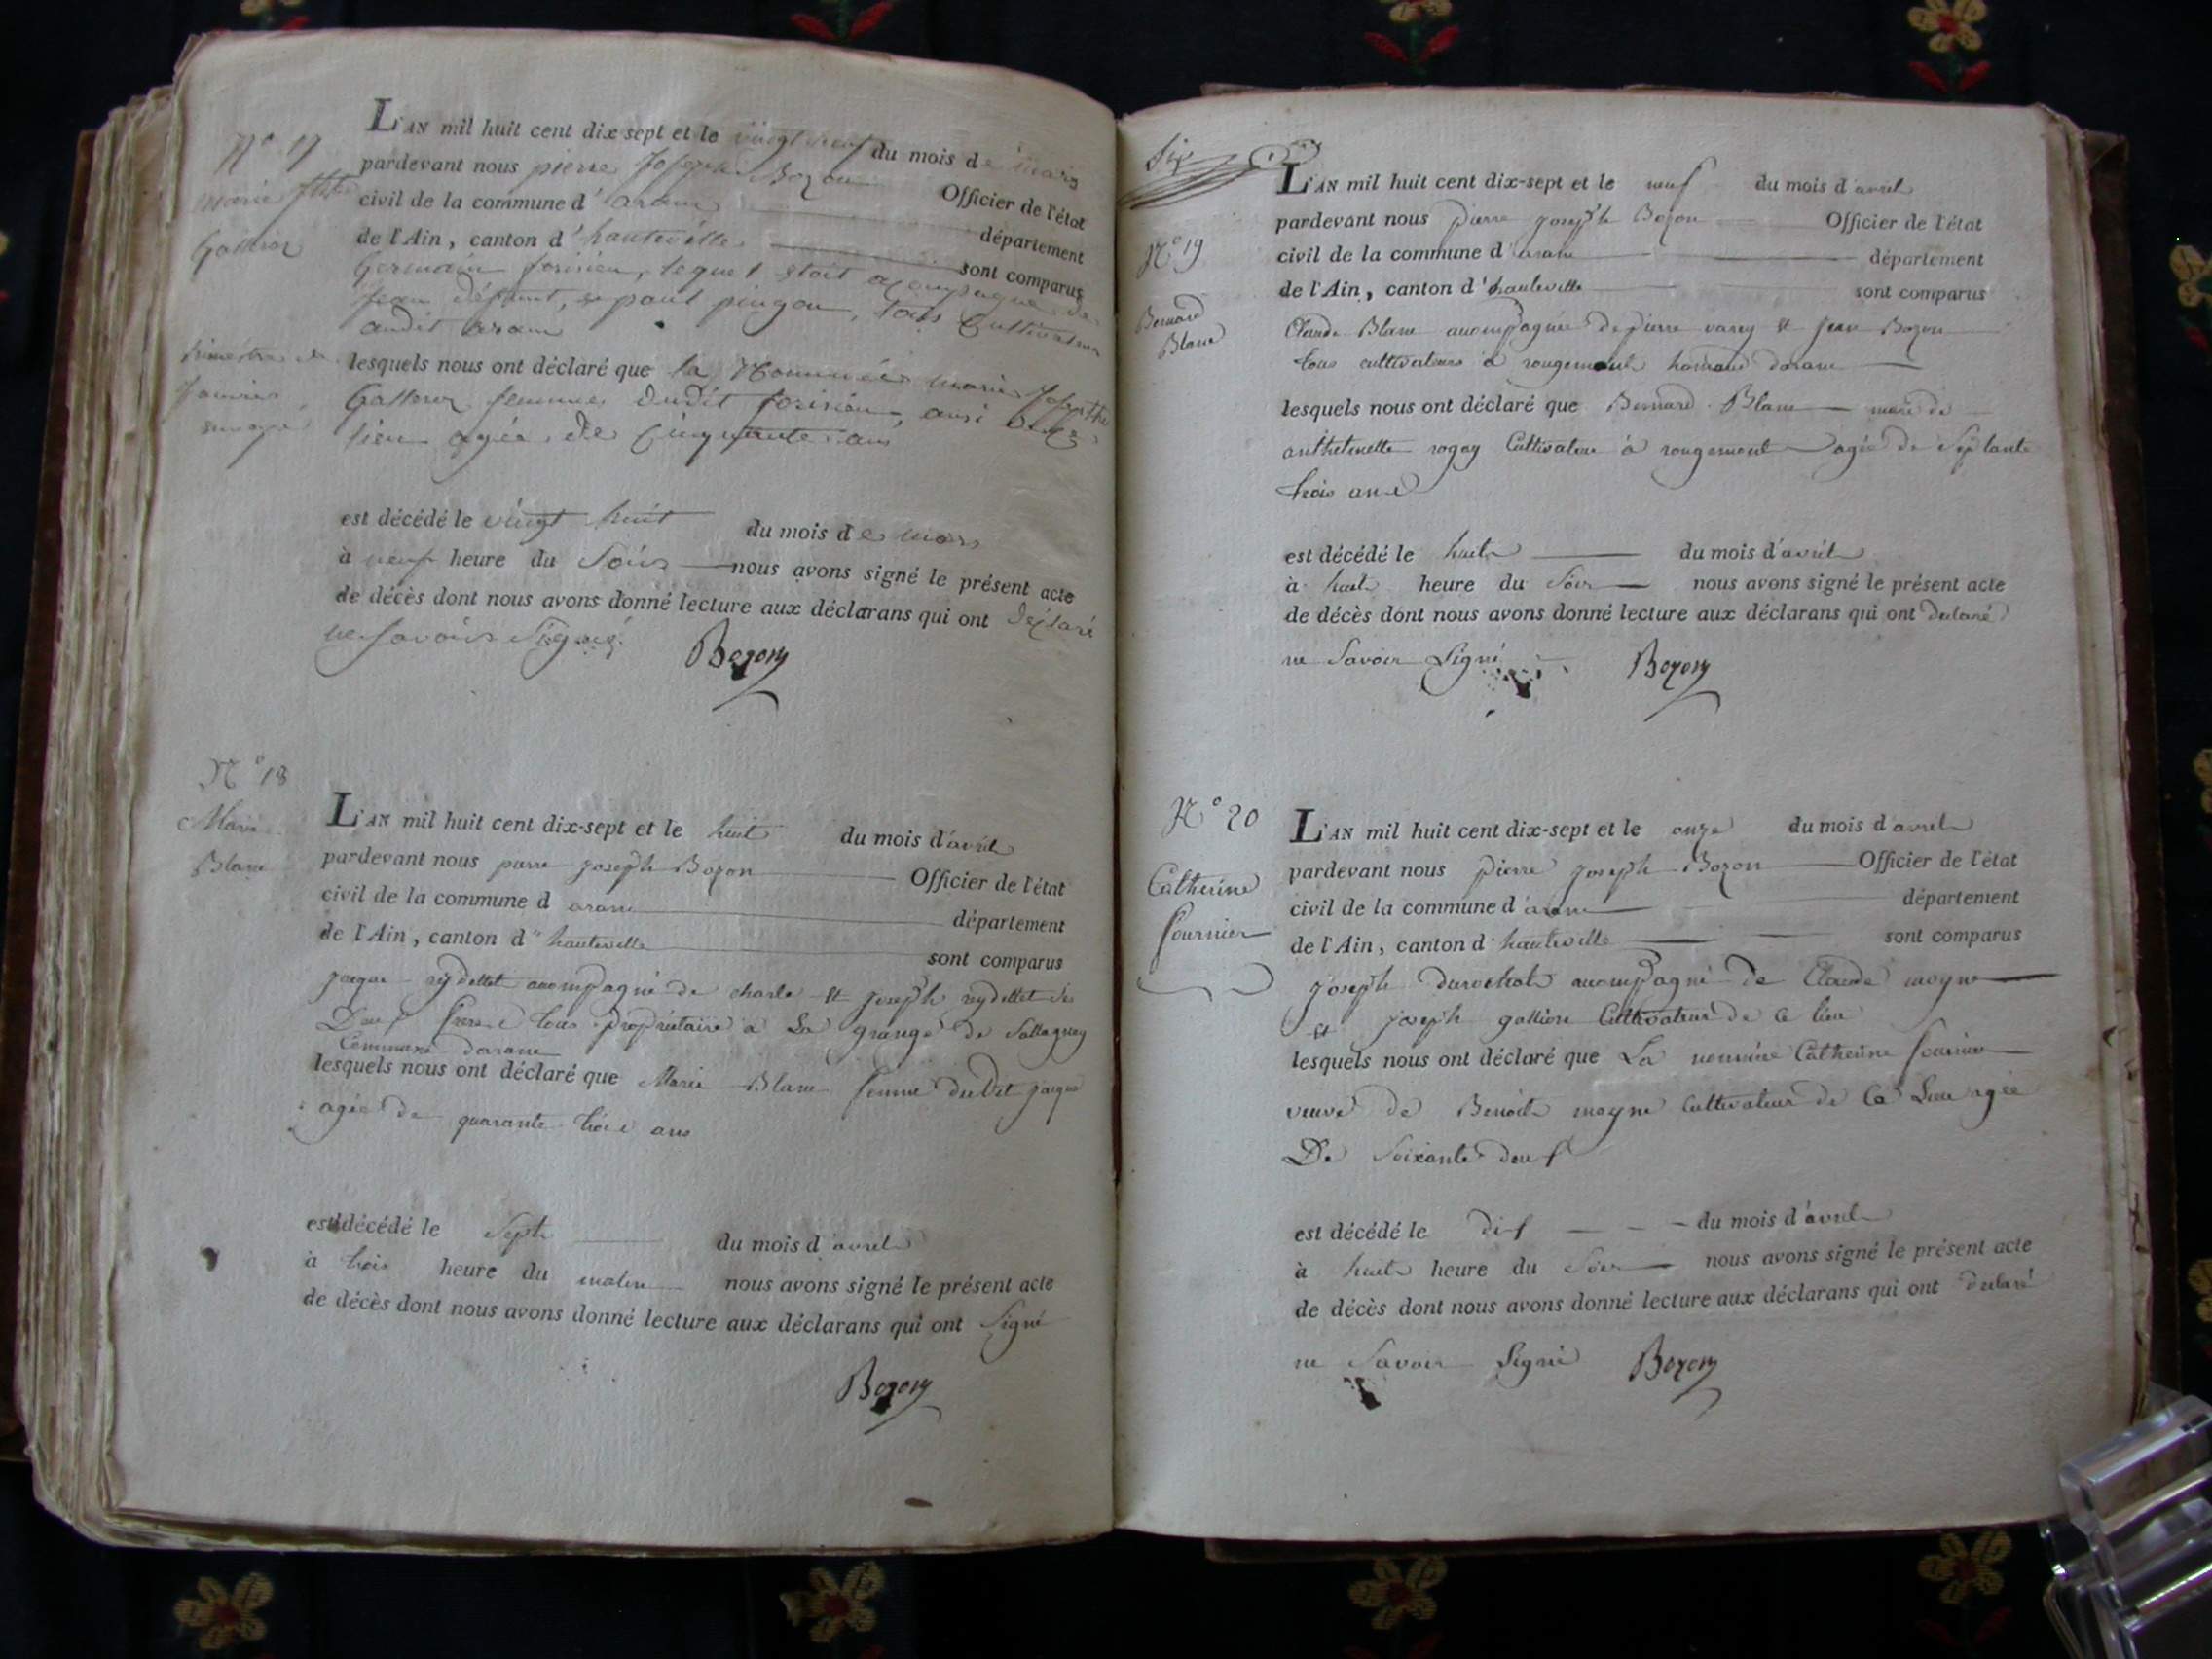 N° 17
marie
L'AN mil huit cent dix-sept et le vingt neuf du mois de mars
pardevant nous pierre Joseph Bozon Officier de l'état
civil de la commune d'aranc département
de l'Ain, canton d'hauteville sont comparus
Germain, lequel etoit acompagné de
jean, et paul pingon, tous Cultivateurs
audit aranc
trimestre de
Janvier
lesquels nous ont déclaré que la Nommée marie Josephte
femme dudit, ausi dudit
lieu agée de Cinquante ans
est décédé le vingt huit du mois de mars
à neuf heure du Soir nous avons signé le présent acte
de décès dont nous avons donné lecture aux déclarans qui ont déclaré
ne savoir Signé.
Bozon
N° 18
Marie
Blanc
L'AN mil huit cent dix-sept et le huit du mois d'avril
pardevant nous pierre joseph Bozon Officier de l'état
civil de la commune d aranc département
de l'Ain, canton d'hauteville sont comparus
jacque reydellet acompagné de charle et joseph reydellet
Deux frere tous propriétaire a La grange de
Commune daranc
lesquels nous ont déclaré que Marie Blanc femme dudit jacque
agée de quarante trois ans
est décédé le Sept du mois d'avril
à trois heure du matin nous avons signé le présent acte
de décès dont nous avons donné lecture aux déclarans qui ont Signé
Bozon
Six
N° 19
Bernard
Blanc
L'AN mil huit cent dix-sept et le neuf du mois d'avril
pardevant nous pierre joseph Bozon Officier de l'état
civil de la commune d'aranc département
de l'Ain, canton d'hauteville sont comparus
Claude Blanc acompagnée de pierre varey et jean Bozon
tous cultivateurs a rougemont hameau daranc
lesquels nous ont déclaré que Bernard Blanc marié de
Cultivateur à rougemont agée de Septante
trois ans
est décédé le huit du mois d'avril
à huit heure du Soir nous avons signé le présent acte
de décès dont nous avons donné lecture aux déclarans qui ont declaré
ne Savoir Signé
Bozon
N° 20
Catherine
fournier
L'AN mil huit cent dix-sept et le onze du mois d'avril
pardevant nous pierre joseph Bozon Officier de l'état
civil de la commune d'aranc département
de l'Ain, canton d'hauteville sont comparus
joseph durochat acompagné de Claude moyne
et joseph gallion Cultivateur de Ce lieu
lesquels nous ont déclaré que La nommée Catherine fournier
veuve de Benoit moyne Cultivateur de Ce Lieu agée
De Soixante deux
est décédé le dix du mois d'avril
à huit heure du Soir nous avons signé le présent acte
de décès dont nous avons donné lecture aux déclarans qui ont declaré
ne Savoir Signé Bozon